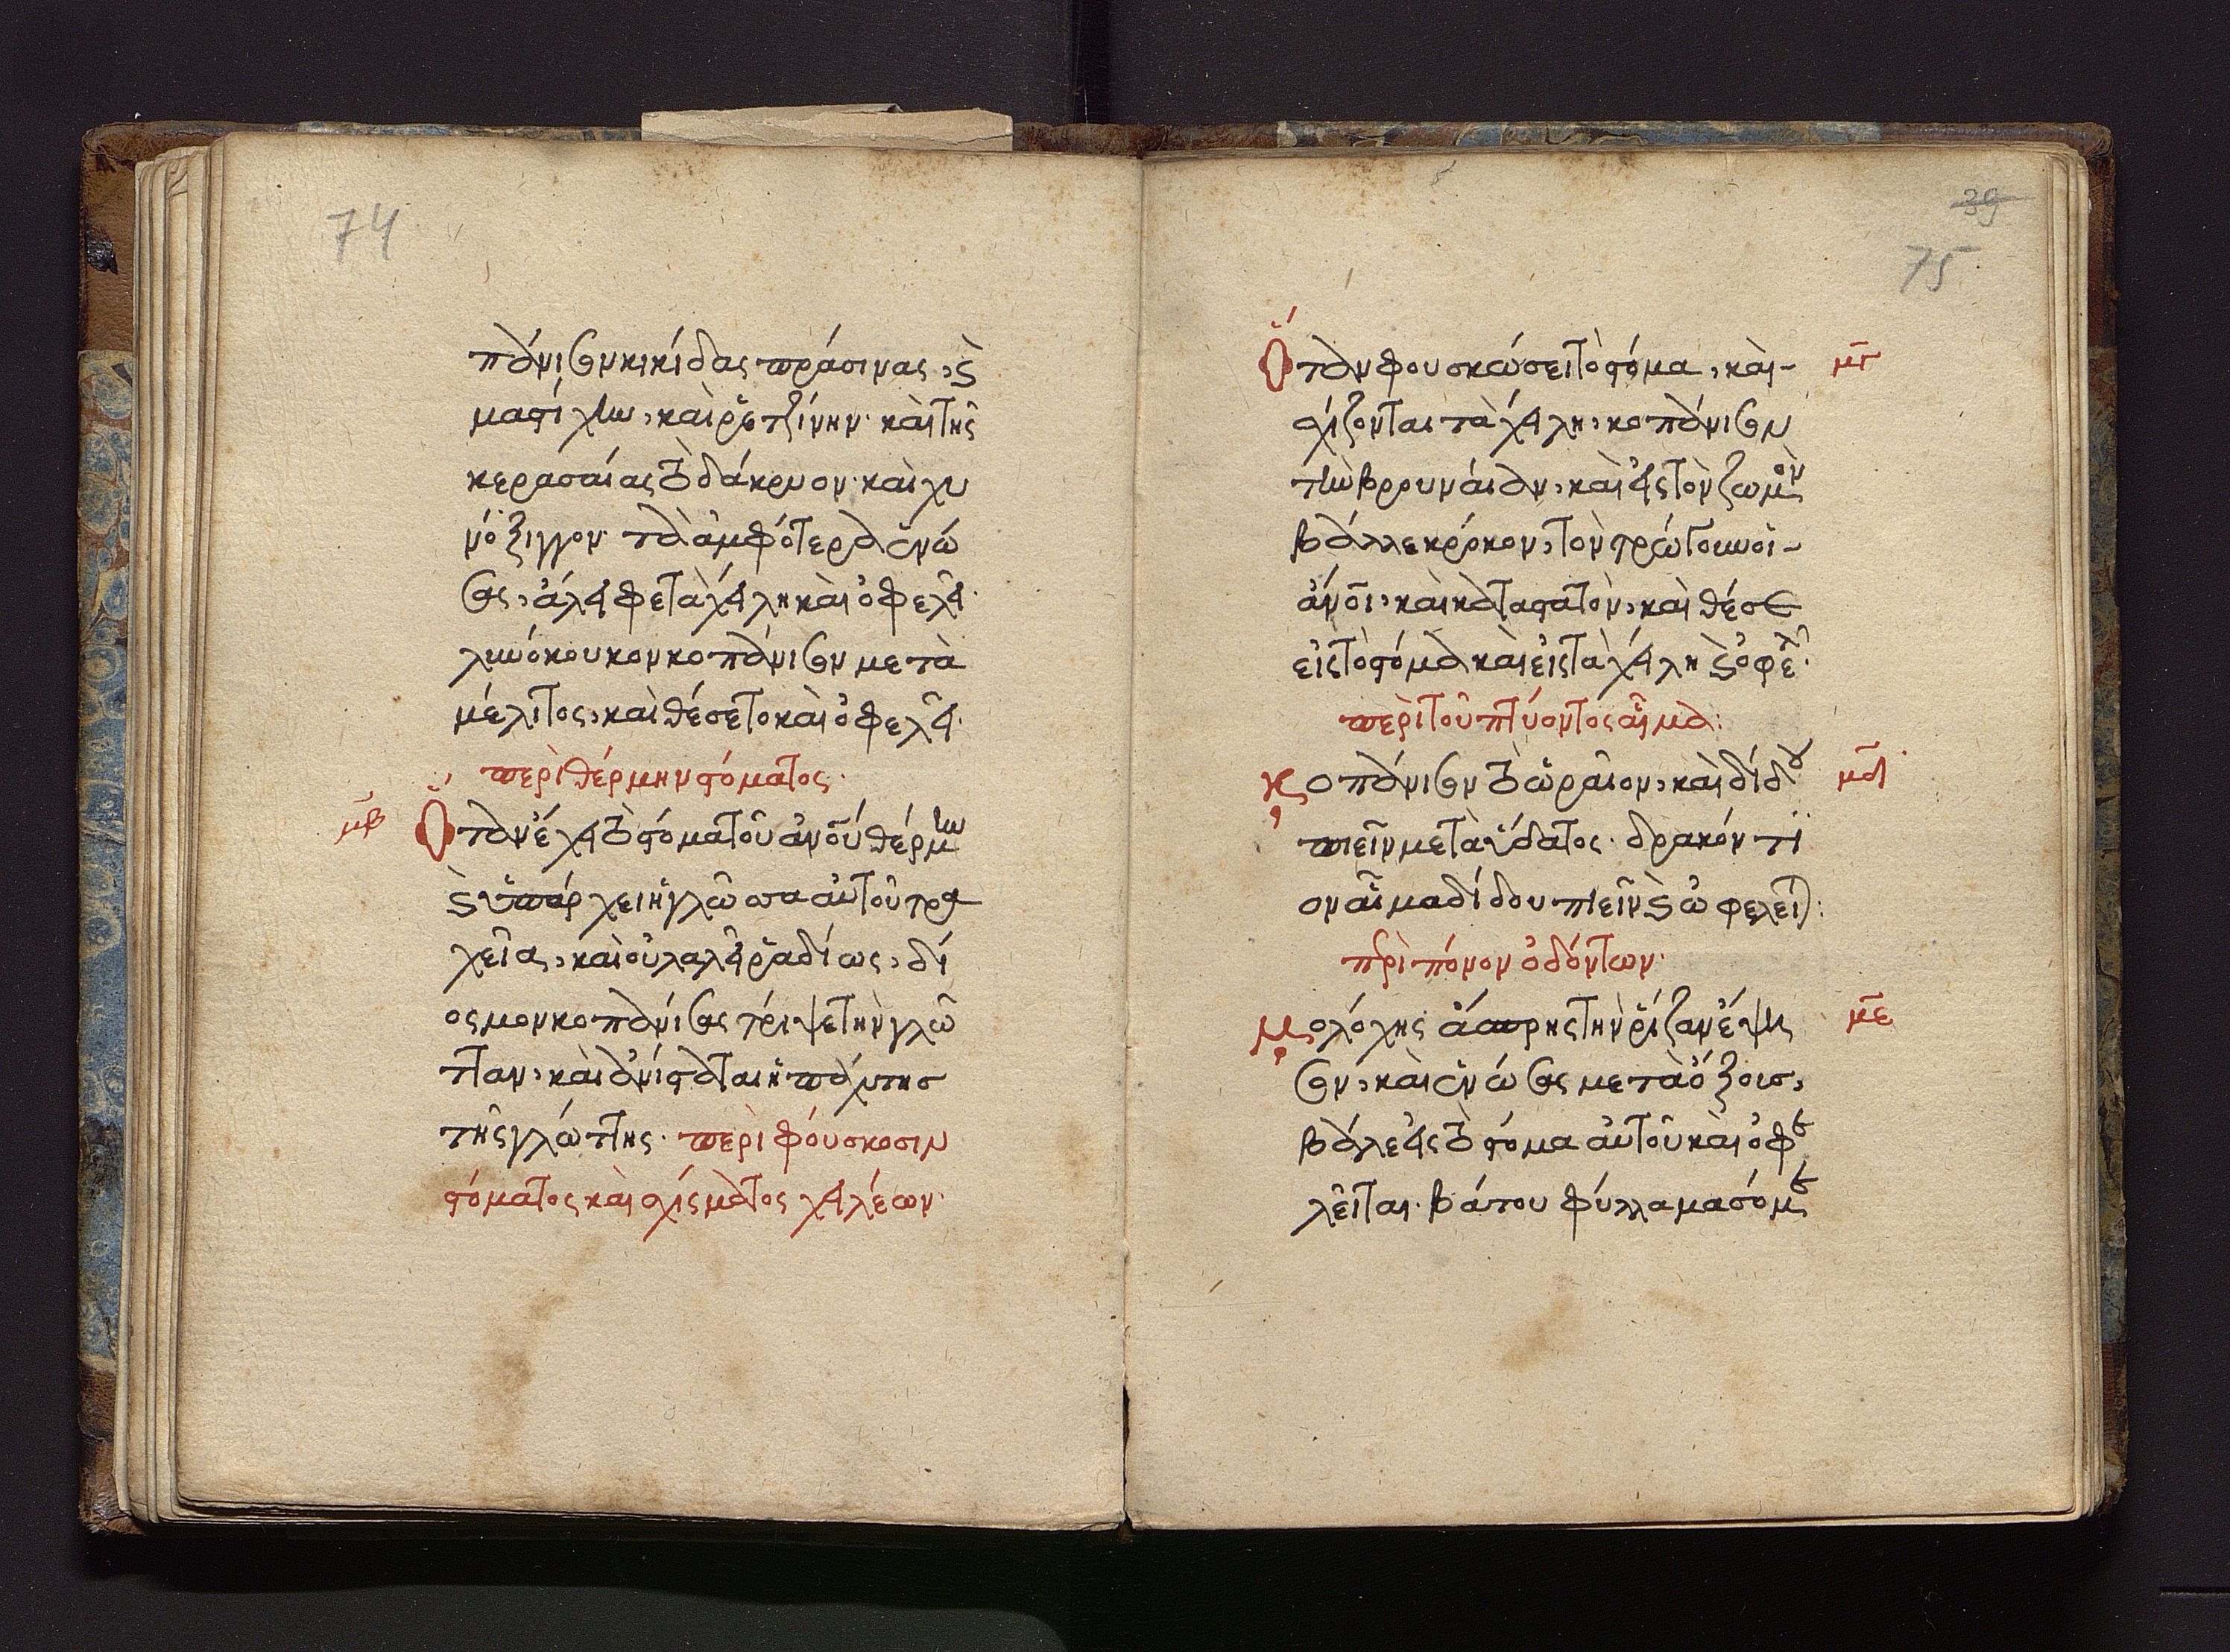 74
πάνισον κικίδας πράσινας, καὶ
μαστίχην, καὶ ρετζίνην· καὶ τῆς
κερασαίας τὸ δάκρυον· καὶ χυ
νόξιγγον· τὰ ἀμφότερα ἑνώ
σας, ἄλειφε τὰ χείλη καὶ ὀφελεῖ·
λινόκουκον κοπάνισον μετὰ
μέλιτος, καὶ θέσε το καὶ ὀφελεῖ·
περὶ θέρμην στόματος·
μβ Ὅταν ἔχει τὸ στόμα τοῦ ἀνου θέρμην
καὶ ὑπάρχει ἡ γλῶσσα αὐτοῦ τρα
χεῖα, καὶ οὐ λαλεῖ ῥαδίως, δί
οσμον κοπανίσας τρίψε τὴν γλῶ
τταν, καὶ ἀνίσταται ἡ παχύτης
τῆς γλώττης· περὶ φούσκοσιν
στόματος καὶ σχίσματος χειλέων·
39
75
Ὅταν φουσκώσει τὸ στόμα, καὶ- μγ
σχίζονται τὰ χείλη, κοπάνισον
τὴν βρουνάιαν, καὶ εἰς τὸν ζωμὸν
βάλλε κρόκον, τὸν πρῶτον ποι-
ἄνοι, καὶ καταστατὸν, καὶ θέσε
εἰς τὸ στόμα καὶ εἰς τὰ χείλη καὶ ὀφελ·
περὶ τοῦ πτύοντος αἷμα:
Κοπάνισον τὸ ὡραῖον, καὶ δίδου μδ
πιεῖν μετὰ ὕδατος· δρακόντι
ον αἷμα δίδου πιεῖν καὶ ὠφελεῖ:
περὶ πόνον ὀδόντων·
Μολόχης ἄσπρης τὴν ρίζαν ἕψη με
σον, καὶ ἑνώσας μετὰ ὄξους,
βάλε εἰς τὸ στόμα αὐτοῦ καὶ ὀφε
λεῖται· βάτου φύλλα μασόμε